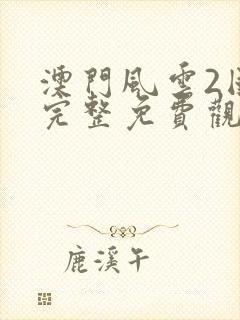 澳門風雲2
完整免費觀
鹿溪午